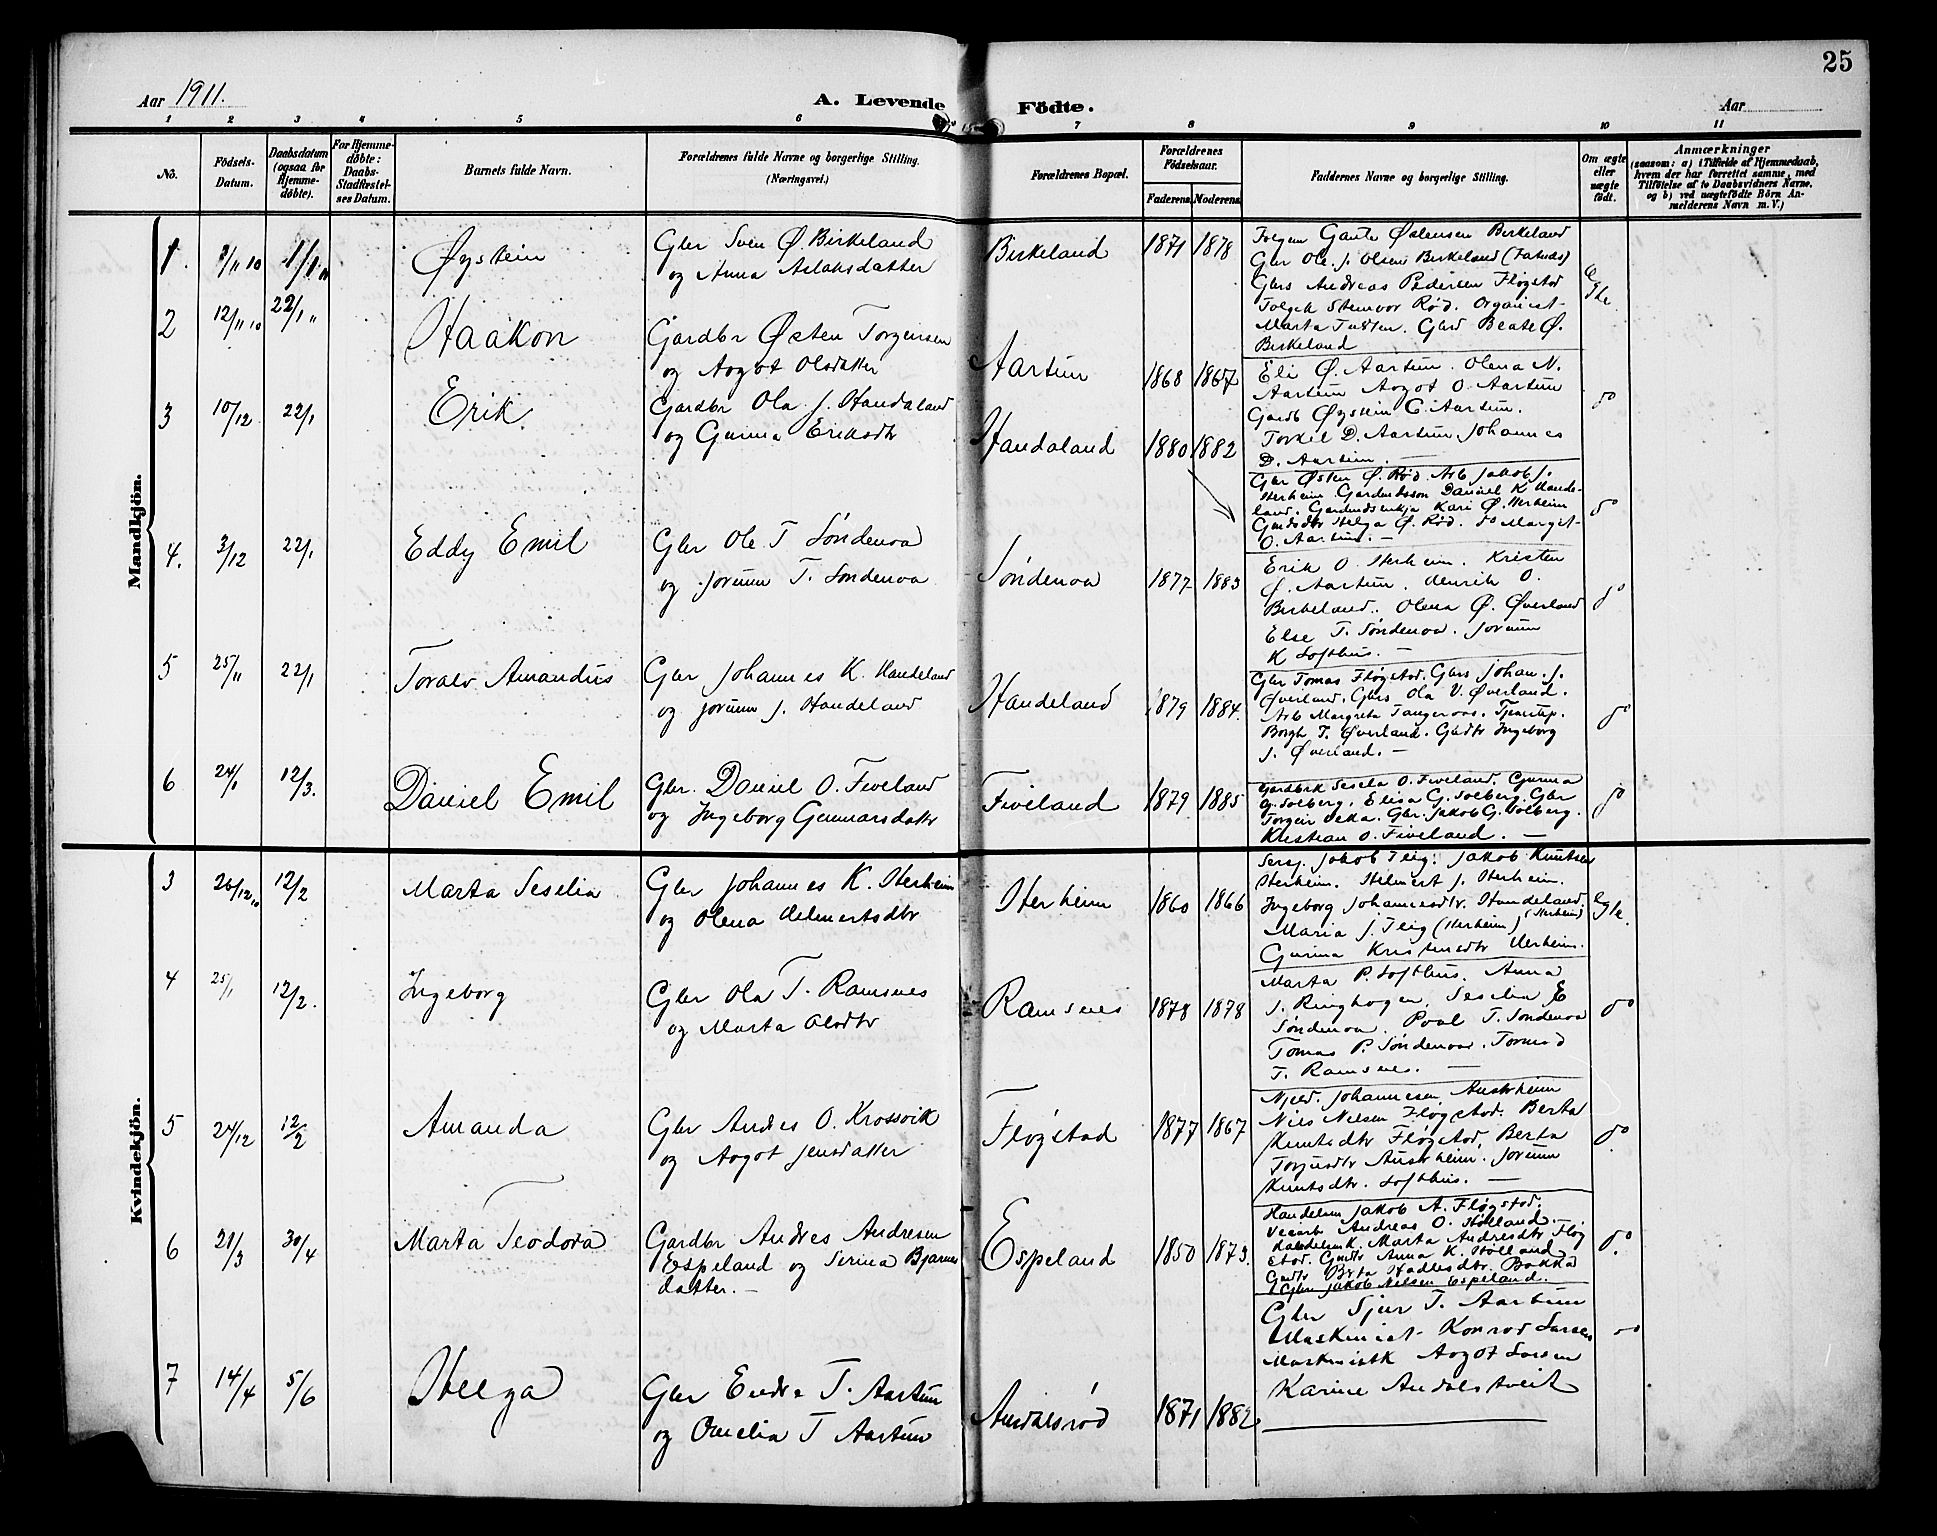 25
Aar 1911.
A. Levende Födte.
Aar
1 2 3 4 5 6 7 8 9 10 11
No.
Födsels-Datum.
Daabsdatum (ogsaa for Hjemme-döbte).
For Hjemme-döbte: Daabs-Stadfæstel-ses Datum.
Barnets fulde Navn.
Forældrenes fulde Navne og borgerlige Stilling.
(Næringsvei.)
Forældrenes Bopæl.
Forældrenes Födselsaar.
Faderens. Moderens.
Faddernes Navne og borgerlige Stilling.
Om ægte eller uægte födt.
Anmærkninger
(saasom: a) i Tilfælde af Hjemmedaab,
hvem der har forrettet samme, med
Tilföielse af to Daabsvidners Navne,
og b) ved uægtefödte Börn An-
melderens Navn m. V.)
Mandkjön.
1. 1/1 11 Øystein
Gbr Sven Ø. Birkeland
og Anna Aslaksdatter
Birkeland 1871 1878
Gbr Ole J. Olsen Birkeland
Gbrs Andreas Pedersen Fløgstad
Stenvor Rød. Organist
Marta Gbrd Beate Ø.
Birkeland
Egte
2 12/11 10 22/1 11 Haakon
Gardbr Østen Torgeirsen
og Aagot Olsdatter
Aartun 1868 1867
Eli Ø. Aartun. Olena N.
Aartun Aagot O. Aartun
Gardb Øystein C. Aartun.
Torkel D. Aartun Johannes
D. Aartun. —
do
3 10/12 22/1 Erik
Gardbr Ola J. Handeland
og Gurina Eriksdtr
Handaland 1880 1882
Gbr Østen Ø. Rød. Arb Jakob J.
Herheim. Daniel K Hande-
land. Kari Ø. Herheim
Helga Ø. Rød. do Margit
O. Aartun. —
do
4. 3/12 22/1 Eddy Emil
Gbr Ole T Søndenaa
og Jorunn T. Søndenaa
Søndenaa 1877 1883
Erik O Herheim. Kristen
Ø. Aartun. Henrik O.
Birkeland. Olena Ø. Øverland
Else T. Søndenaa. Jorunn
K Lofthus. —
do
5 25/11 22/1 Toralv Amandus
Gbr Johannes K. Handeland
og Jorunn J. Handeland
Handeland 1879 1884.
Gbr Tomas Fløgstad. Gbrs Johan J.
Øverland. Gbrs Ola V. Øverland.
Arb Margreta Tangeraas. Tjenestep.
Borgh T. Øverland. Gbdtr Ingeborg
J. Øverland. —
do
6 24/1 12/3. Daniel Emil
Gbr. Daniel O. Fiveland
og Ingeborg Gunnarsdatter
Fiveland 1879 1885
Gardbrk Sesela O. Fiveland. Gurina
G. Solberg. Elisa G. Solberg. Gbr
Torgeir Veka. Gbr. Jakob G. Solberg.
Kristian O. Fiveland. —
do
Kvindekjön.
3 26/12 10 12/2 Marta Seselia
Gbr Johannes K. Herheim
og Olena Helmertsdtr
Herheim 1860 1866
Sersj. Jakob Teig. Jakob Knutsen
Herheim. Helmert J. Herheim.
Ingeborg Johannesdtr. Handeland.
(Herheim)
Maria J. Teig (Herheim)
Gurina Kristensdtr Herheim.
Egte.
4 25/1 12/2. Ingeborg
Gbr Ola T. Ramsnes
og Marta Olsdtr
Ramsnes 1878 1878
Marta P. Lofthus. Anna
J. Ringhagen. Seselia E
Søndenaa. Poal T. Søndenaa
Tomas P. Søndenaa. Tormod
T. Ramsnes. —
do
5 24/12 12/2 Amanda
Gbr Andres O. Krossvik
og Aagot Jensdatter
Fløgstad 1877 1867
Njeld. Johannesen Austrheim
Nils Nilsen Fløgstad. Berta
Knutsdtr Fløgstad. Berta
Torjusdtr Austrheim. Jorunn
Knutsdtr. Lofthus. —
do
6 21/3 30/4 Marta Teodora
Gardbr Andres Andresen
Espeland og Serina Bjarne
datter. —
Espeland 1850 1873.
Handelsm Jakob A. Fløgstad.
Andreas O. Hølland.
Handelsm K. Marta Andresdtr Fløg
stad. Gbdtr Anna K. Hølland
Gbdtr Brta Hadlesdtr. Bakka
Gbr Jakob Nilsen Espeland.
do
7 14/4 5/6 Helga
Gbr Endre T. Aartun
og Omelia T Aartun
Amdalsrød 1871 1882.
Gbr Sjur T. Aartun
Maskinist Konrad Larsen
Maskinistk Aagot Larsen
Karine Andalstveit
do